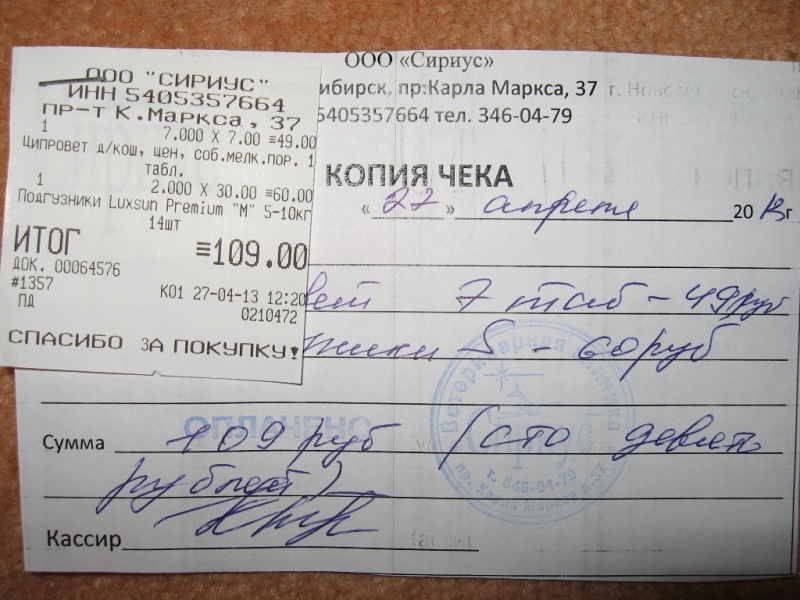 ООО "СИРИУС"
ИНН 5405357664
ПР-Т К.Маркса, 37
1
7.000 X 7.00 ≡49.00
Ципровет д/кош, щен, соб.мелк.пор. 1
табл.
1
2.000 X 30.00 ≡60.00
Подгузники Luxsun Premium "M" 5-10кг
14шт
ИТОГ ≡109.00
ДОК. 00064576
#1357
ПД
К01 27-04-13 12:20
0210472
СПАСИБО ЗА ПОКУПКУ!
ООО «Сириус»
ибирск, пр:Карла Маркса, 37
5405357664 тел. 346-04-79
КОПИЯ ЧЕКА
« 27 » апреля 2013г
вет 7 таб - 49 руб
зники - 60 руб
ОПЛАЧЕНО
Сумма 109 руб (сто девять
рублей)
Кассир
Ветеринарная клиника
Сириус
т. 346-04-79
пр. Карла Маркса д.37